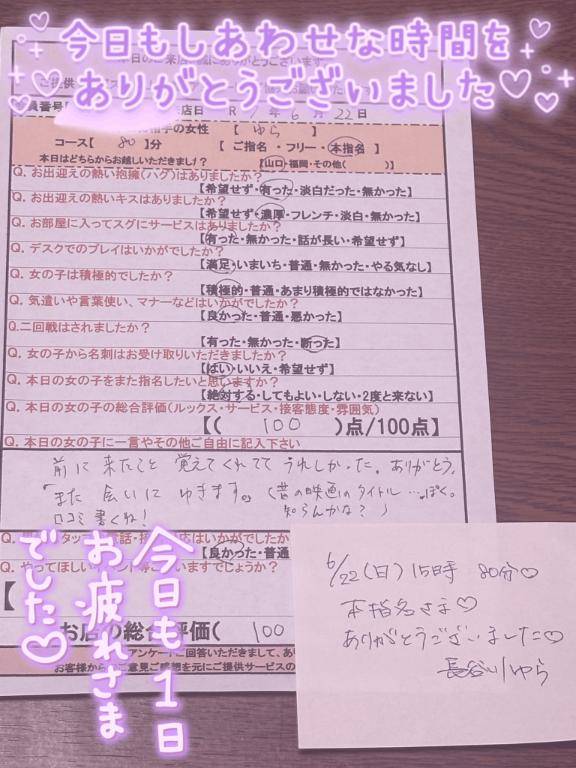 今日もしあわせな時間を
ありがとうございました♡
本日のご来店
員番号
店日 R 年 6 月 22 日
の女性 【 ゆら 】
コース【 80 】分 【 ご指名 ・ フリー ・ 本指名 】
本日はどちらからお越しいただきまし? 【山口・福岡・その他( )】
Q. お出迎えの熱い抱擁(ハグ)はありましたか?
【希望せず・有った・淡白だった・無かった】
Q. お出迎えの熱いキスはありましたか?
【希望せず・濃厚・フレンチ・淡白・無かった】
Q. お部屋に入ってスグにサービスはありましたか?
【有った・無かった・話が長い・希望せず】
Q. デスクでのプレイはいかがでしたか?
【満足・いまいち・普通・無かった・やる気なし】
Q. 女の子は積極的でしたか?
【積極的・普通・あまり積極的ではなかった】
Q. 気遣いや言葉使い、マナーなどはいかがでしたか?
【良かった・普通・悪かった】
Q.二回戦はされましたか?
【有った・無かった・断った】
Q. 女の子から名刺はお受け取りいただきましたか?
【はい・いいえ・希望せず】
Q. 本日の女の子をまた指名したいと思いますか?
【絶対する・してもよい・しない・2度と来ない】
Q. 本日の女の子の総合評価(ルックス・サービス・接客態度・雰囲気)
【( 100 )点/100点】
Q. 本日の女の子に一言やその他ご自由に記入下さい
前に来たこと 覚えてくれてて うれしかった。ありがとう。
「また 会いに ゆきます。(昔の映画のタイトル…っぽく。
口コミ書くね! 知らんかな?)
タッフ 電話・接 応はいかがでしたか
【良かった・普通
Q. やってほしい ント等 いますでしょうか?
【
お店の総合評価( 100
アンケートに回答いただきまして、あり
お客様から ご意見ご感想を元にご提供サービスの
今日も1日
お疲れさま
でした♡
6/22(日) 15時 80分♡
本指名さま♡
ありがとうございました♡
長谷川ゆら